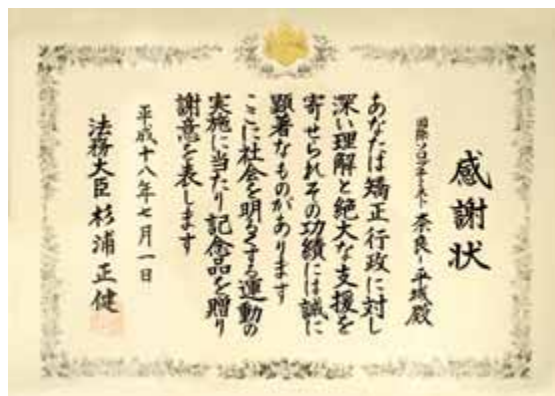 感謝状
国際ソロプチミスト奈良ー平城殿
あなたは矯正行政に対し
深い理解と絶大な支援を
寄せられその功績には誠に
顕著なものがあります
ここに社会を明るくする運動の
実施に当たり記念品を贈り
謝意を表します
平成十八年七月一日
法務大臣 杉浦正健